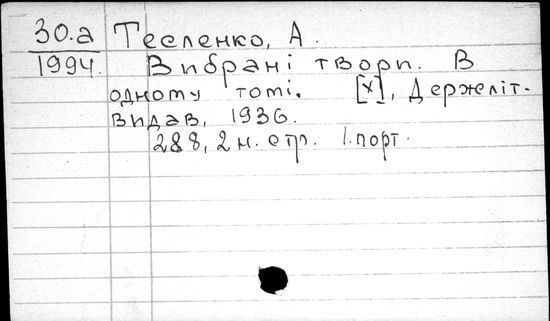 30.а Тесленко, А.
1994. Вибрані твори. В
одному томі. [X], Держліт-
видав, 1936.
288, 2 н. стр. 1. порт.